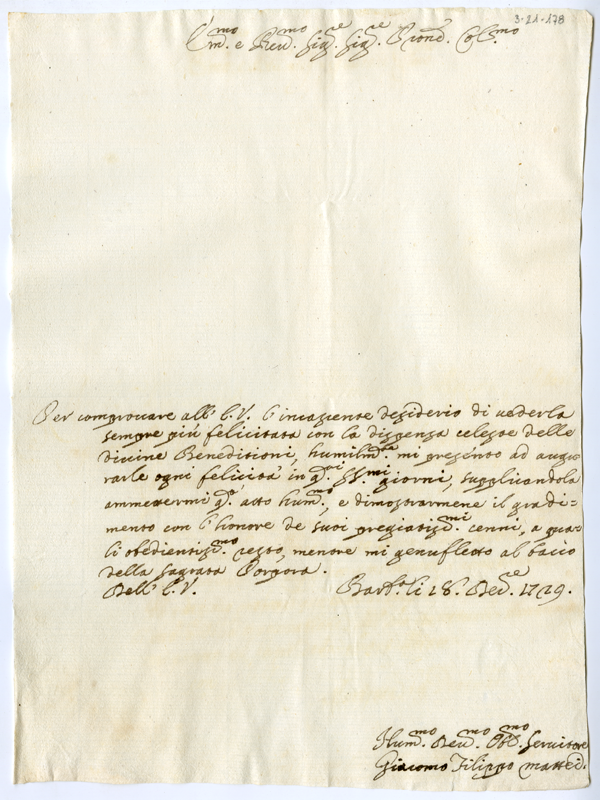 3-21-178
E.mo e Rev.mo Sig.re Sig.re Pron. Col.mo
Per comprovare all' E.V. l'incessente desiderio di vederla
sempre più felicitata con la dispensa celeste delle
Divine Beneditioni, humilm.te mi presento ad augu-
rarle ogni felicità in q.ti SS.mi giorni, supplicandola
ammettermi q.o atto hum.mo, e dimostrarmene il gradi-
mento con l'honore de suoi pregiatiss.mi cenni, a qua-
li obedientiss.mo resto, mentre mi genuflecto al bacio
della sagrata Porpora.
Dell' E.V.
Barb. li 18. Dec.re 1729.
Hum.mo Dev.mo Obb.mo Servitore
Giacomo Filippo Mattei.